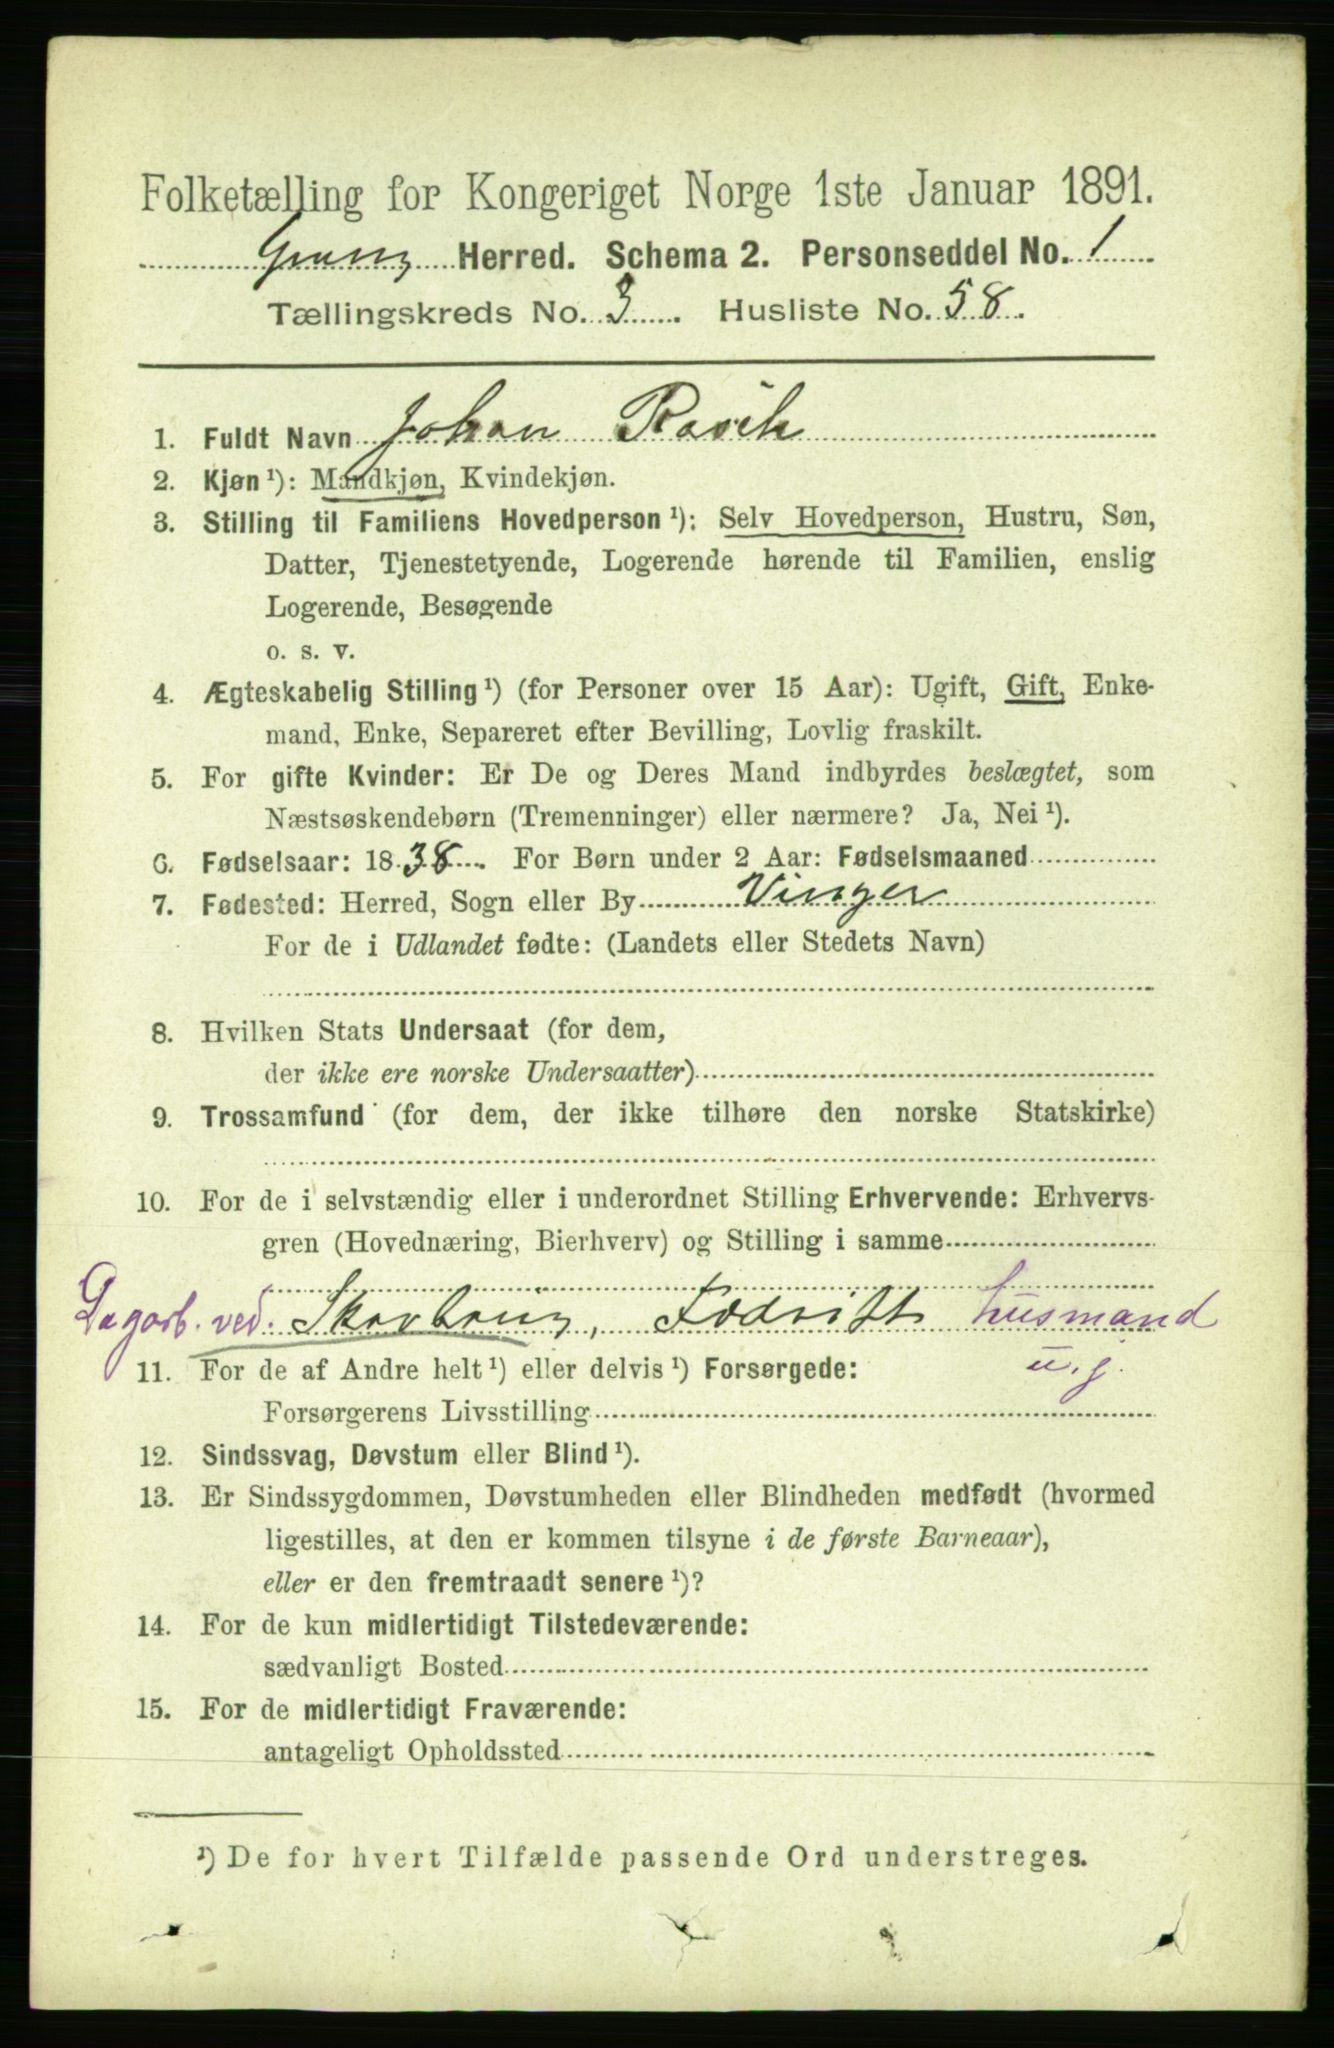 Folketælling for Kongeriget Norge 1ste Januar 1891.
Grang Herred. Schema 2. Personseddel No. 1
Tællingskreds No. 3. Husliste No. 58.
1. Fuldt Navn Johan Rasch
2. Kjøn ¹): Mandkjøn, Kvindekjøn.
3. Stilling til Familiens Hovedperson ¹): Selv Hovedperson, Hustru, Søn,
Datter, Tjenestetyende, Logerende hørende til Familien, enslig
Logerende, Besøgende
o. s. v.
4. Ægteskabelig Stilling ¹) (for Personer over 15 Aar): Ugift, Gift, Enke-
mand, Enke, Separeret efter Bevilling, Lovlig fraskilt.
5. For gifte Kvinder: Er De og Deres Mand indbyrdes beslægtet, som
Næstsøskendebørn (Tremenninger) eller nærmere? Ja, Nei ¹).
6. Fødselsaar: 1838. For Børn under 2 Aar: Fødselsmaaned
7. Fødested: Herred, Sogn eller By Vinger
For de i Udlandet fødte: (Landets eller Stedets Navn)
8. Hvilken Stats Undersaat (for dem,
der ikke ere norske Undersaatter)
9. Trossamfund (for dem, der ikke tilhøre den norske Statskirke)
10. For de i selvstændig eller i underordnet Stilling Erhvervende: Erhvervs-
gren (Hovednæring, Bierhverv) og Stilling i samme
Dagarb. ved. Skovbrug, husmand
11. For de af Andre helt ¹) eller delvis ¹) Forsørgede: u. j.
Forsørgerens Livsstilling
12. Sindssvag, Døvstum eller Blind ¹).
13. Er Sindssygdommen, Døvstumheden eller Blindheden medfødt (hvormed
ligestilles, at den er kommen tilsyne i de første Barneaar),
eller er den fremtraadt senere ¹)?
14. For de kun midlertidigt Tilstedeværende:
sædvanligt Bosted
15. For de midlertidigt Fraværende:
antageligt Opholdssted
¹) De for hvert Tilfælde passende Ord understreges.